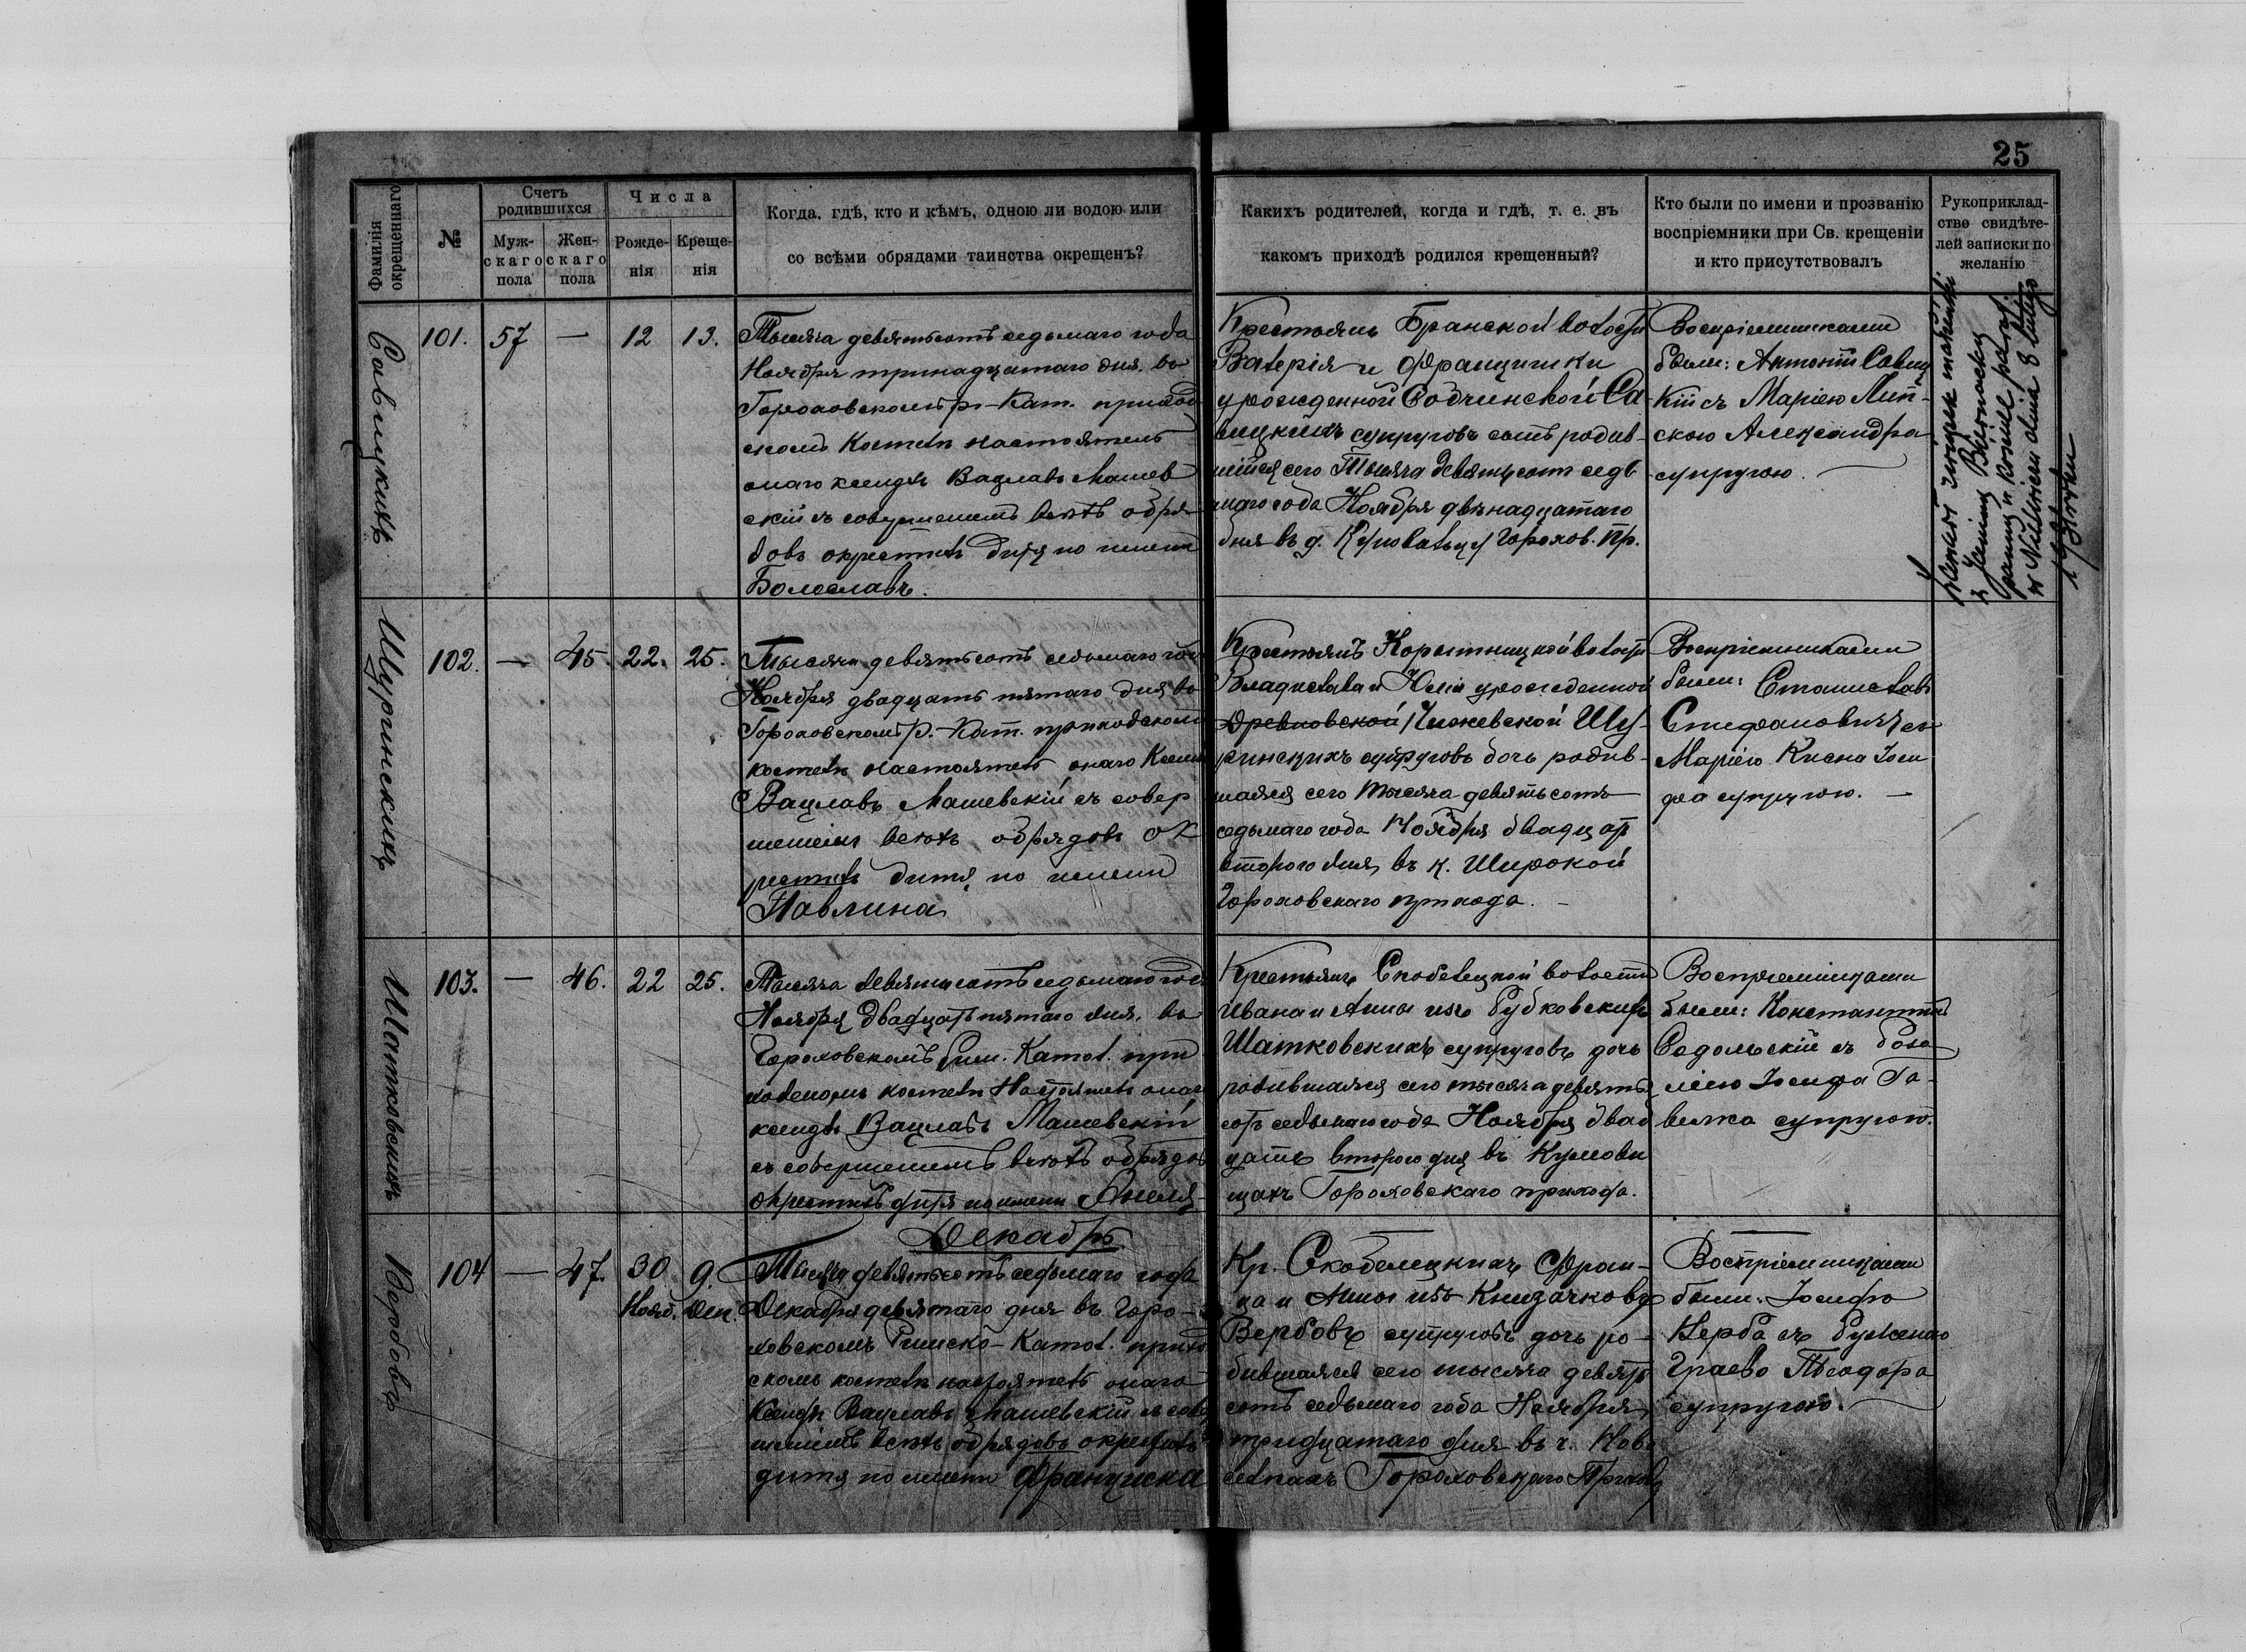 25
Фамилія окрещеннаго
№
Счетъ родившихся
Муж-
скаго
пола
Жен-
скаго
пола
Числа
Рожде-
нія
Креще-
нія
Когда, гдѣ, кто и кѣмъ, одною ли водою или
со всѣми обрядами таинства окрещенъ?
Какихъ родителей, когда и гдѣ, т. е. въ
какомъ приходѣ родился крещенный?
Кто были по имени и прозванію
воспріемники при Св. крещеніи
и кто присутствовалъ
Рукоприклад-
ство свидѣте-
лей записки по
желанію
Савицкихъ
101.
57
—
12
13.
Тысяча девятьсотъ седьмаго года
Ноября тринадцатаго дня въ
Гороховскомъ р.-Кат. приход
скомъ костелѣ настоятель
онаго ксендзъ Вацлавъ Машев
скій съ совершеніемъ всѣхъ обря
довъ окрестилъ дитя по имени
Болеславъ.
Крестьянъ Бранской волости
Валерія и Францишки
урожденной Содчинской Са-
вицкихъ супруговъ сынъ родив-
шійся сего Тысяча девятьсот седь
маго года Ноября двѣнадцатаго
дня въ д. Горохов. пр.
Воспріемниками
были: Антоній Савиц
кій съ Маріею Лип-
скою Александра
супругою.
Щуринскихъ
102.
—
45.
22.
25.
Тысяча девятьсотъ седьмаго года
Ноября двадцать пятаго дня въ
Гороховскомъ р.-Кат. приходскомъ
костелѣ настоятель онаго Ксендзъ
Вацлавъ Машевскій съ совер
шеніемъ всѣхъ обрядовъ ок
рестилъ дитя по имени
Павлина
Крестьянъ волости
Владислава и Юліи урожденной
Щу-
ринскихъ супруговъ дочь родив-
шаяся сего тысяча девятьсотъ
седьмаго года Ноября двадцать
втораго дня въ к. Широкой
Гороховскаго прихода.
Воспріемниками
были: Станиславъ
Стефановичъ съ
Маріею Кисна Іоси
фа супругою. —
Шатковскихъ
103.
—
46.
22
25.
Тысяча девятьсотъ седьмаго года
Ноября двадцать пятаго дня въ
Гороховскомъ Рим. Катол. при
ходскомъ костелѣ Настоятель онаго
ксендзъ Вацлавъ Машевскій
съ совершеніемъ всѣхъ обрядовъ
окрестилъ дитя по имени Анеля
Крестьянъ Скобелецкой волости
Ивана и Анны изъ Рудковскихъ
Шатковскихъ супруговъ дочь
родившаяся сего тысяча девять
сотъ седьмаго года Ноября двад
цать втораго дня въ
Гороховскаго прихода.
Воспріемниками
были: Константинъ
съ Роза
ліею Іосифа
супругою.
Вербовъ
104
—
47.
30
Нояб.
9.
Дек.
Декабрь
Тысяча девятьсотъ седьмаго года
Декабря девятаго дня въ Горо-
ховскомъ Римско-Катол. приход
скомъ костелѣ настоятель онаго
Ксендзъ Вацлавъ Машевскій съ совер
шеніемъ всѣхъ обрядовъ окрестилъ
дитя по имени Франциска
Кр. Скобелецкихъ Фран-
ца и Анны изъ
Вербовъ супруговъ дочь ро-
дившаяся сего тысяча девять
сотъ седьмаго года Ноября
тридцатаго дня въ ч. Ново
селкахъ Гороховскаго Прихода
Воспріемниками
были: Іосифъ
Верба съ
Теодора
супругою.